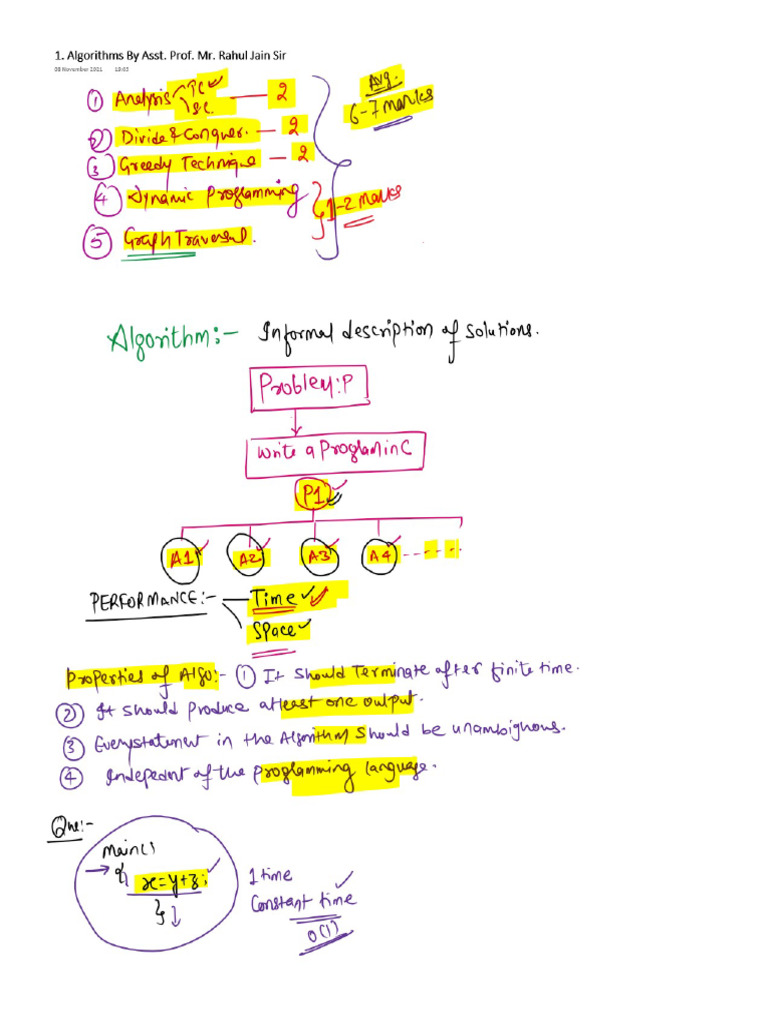 1. Algorithms By Asst. Prof. Mr. Rahul Jain Sir
08 November 2021 13:03
① Analysis TC ✓ SC. — 2
② Divide & Conquer. — 2
③ Greedy Technique — 2
④ Dynamic Programming
⑤ Graph Traversal.
Avg.
6-7 marks
1-2 marks
Algorithm:- Informal description of solutions.
Problem: P
Write a Program in C
P1
A1 A2 A3 A4 ------
PERFORMANCE:- Time ✓
Space ✓
Properties of Algo:- ① It should Terminate after finite time.
② It should produce atleast one output.
③ Every statement in the Algorithm should be unambiguous.
④ Indepedant of the programming language.
Que:-
main()
{ x=y+z;
}
1 time
Constant time
O(1)